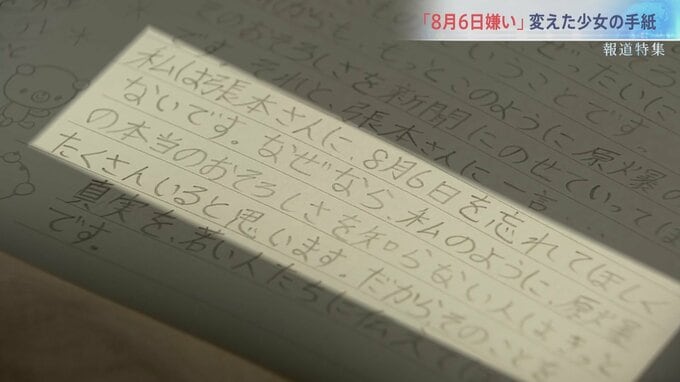 「8月6日嫌い」変えた少女の手紙
報道特集
ということです。
のおそろしさを新聞にのせていってほ
です。それと、張本さんに一言...
私は張本さんに、8月6日を忘れてほしく
ないです。なぜなら、私のように、原爆
の本当のおそろしさを知らない人はきっと
たくさんいると思います。だからそのことを
真実を、若い人たちに伝えて
です。